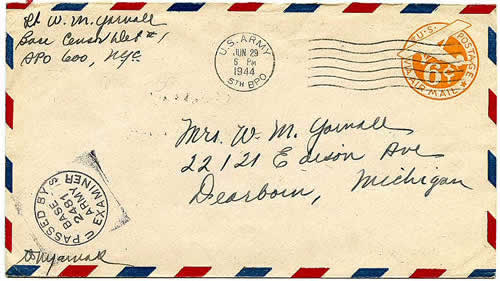 Lt W. M. Yarnall
Base Censor Det #1
APO 600, NYC.
U.S. ARMY
JUN 29
5 PM
1944
5TH BPO.
U.S. POSTAGE
6¢
VIA AIR MAIL
Mrs. W. M. Yarnall
22121 Edison Ave
Dearborn, Michigan
PASSED BY
BASE
2481
ARMY
EXAMINER
WMYarnall